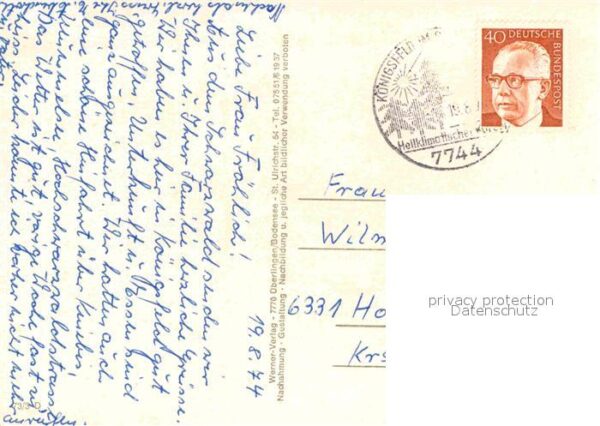 19.8.74
Liebe Frau Fröhlich!
Aus dem Schwarzwald senden wir
Ihnen u. Ihrer Familie herzliche Grüsse.
Wir haben es hier in Königsfeld gut
getroffen, Unterkunft u. Essen sind
ausgezeichnet. Wir hatten auch
eine schöne Hinfahrt über Kniebis
Hochschwarzwaldstrasse
Das Wetter ist gut, vorige Woche fast zu
heiss, heute
Werner-Verlag - 7770 Überlingen/Bodensee - St. Ulrichstr. 54 - Tel. 07551/61937
Nachahmung - Gestaltung - Nachbildung u. jegliche Art bildlicher Verwendung verboten
73/3 D
KÖNIGSFELD IM
Heilklimatischer Kurort
7744
40 DEUTSCHE
BUNDESPOST
Frau
Wilm
6331 Ho
Krs
privacy protection
Datenschutz